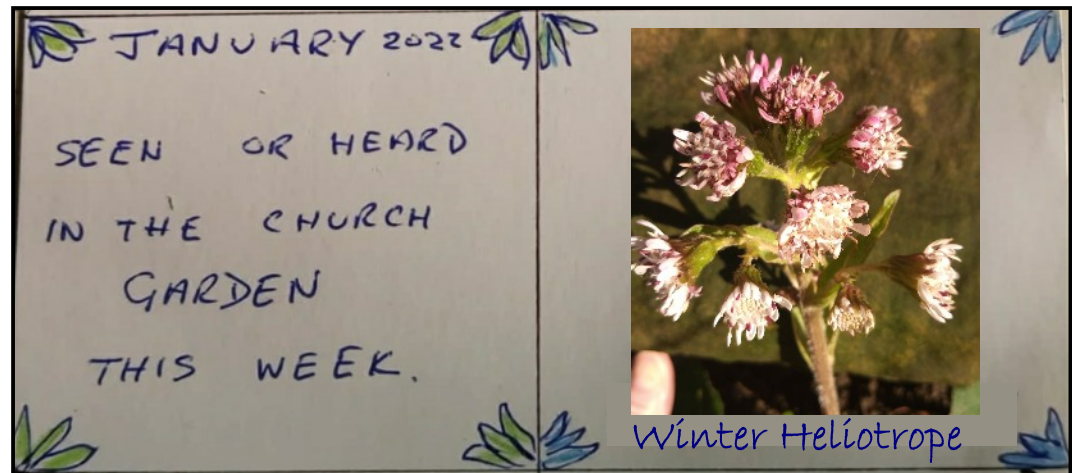 JANUARY 2022
SEEN OR HEARD
IN THE CHURCH
GARDEN
THIS WEEK.
Winter Heliotrope